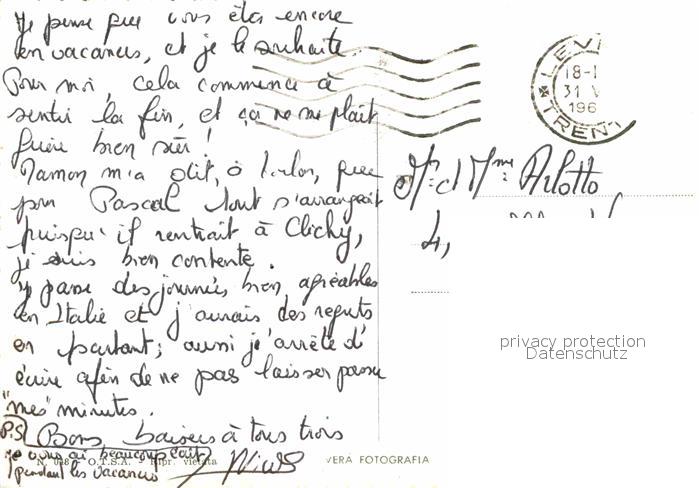 Je pense que vous êtes encore
en vacances, et je le souhaite.
Pour moi, cela commence à
sentir la fin, et ça ne me plaît
guère bien sûr !
Maman m'a dit, à Toulon, que
pour Pascal tout s'arrangeait
puisqu'il rentrait à Clichy,
je suis bien contente.
Je passe des journées bien agréables
en Italie et j'aurais des regrets
en partant; aussi j'arrête d'
écrire afin de ne pas laisser passer
"mes" minutes.
P.S Bons baisers à tous trois
je vous ai beaucoup écrit
pendant les vacances
N. O.T.S.A. Ripr. vietata
VERA FOTOGRAFIA
LEVI
18-1
31 V
196
TRENT
Mr et Mme Arlotto
4,
privacy protection
Datenschutz